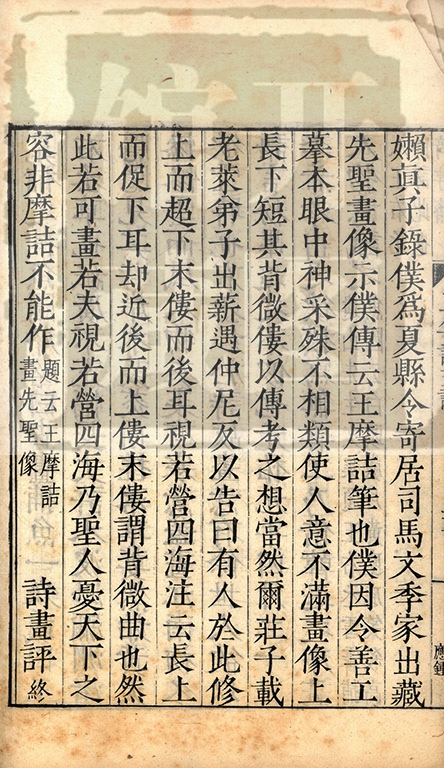 嬾真子錄僕爲夏縣令寄居司馬文季家出藏
先聖畫像示僕傳云王摩詰筆也僕因令善工
摹本眼中神采殊不相類使人意不滿畫像上
長下短其背微僂以傳考之想當然爾莊子載
老萊弟子出薪遇仲尼反以告曰有人於此修
上而趨下末僂而後耳視若營四海注云長上
而促下耳却近後而上僂末僂謂背微曲也然
此若可畫若夫視若營四海乃聖人憂天下之
容非摩詰不能作
題云王摩詰
畫先聖像
詩畫評終
應鍾